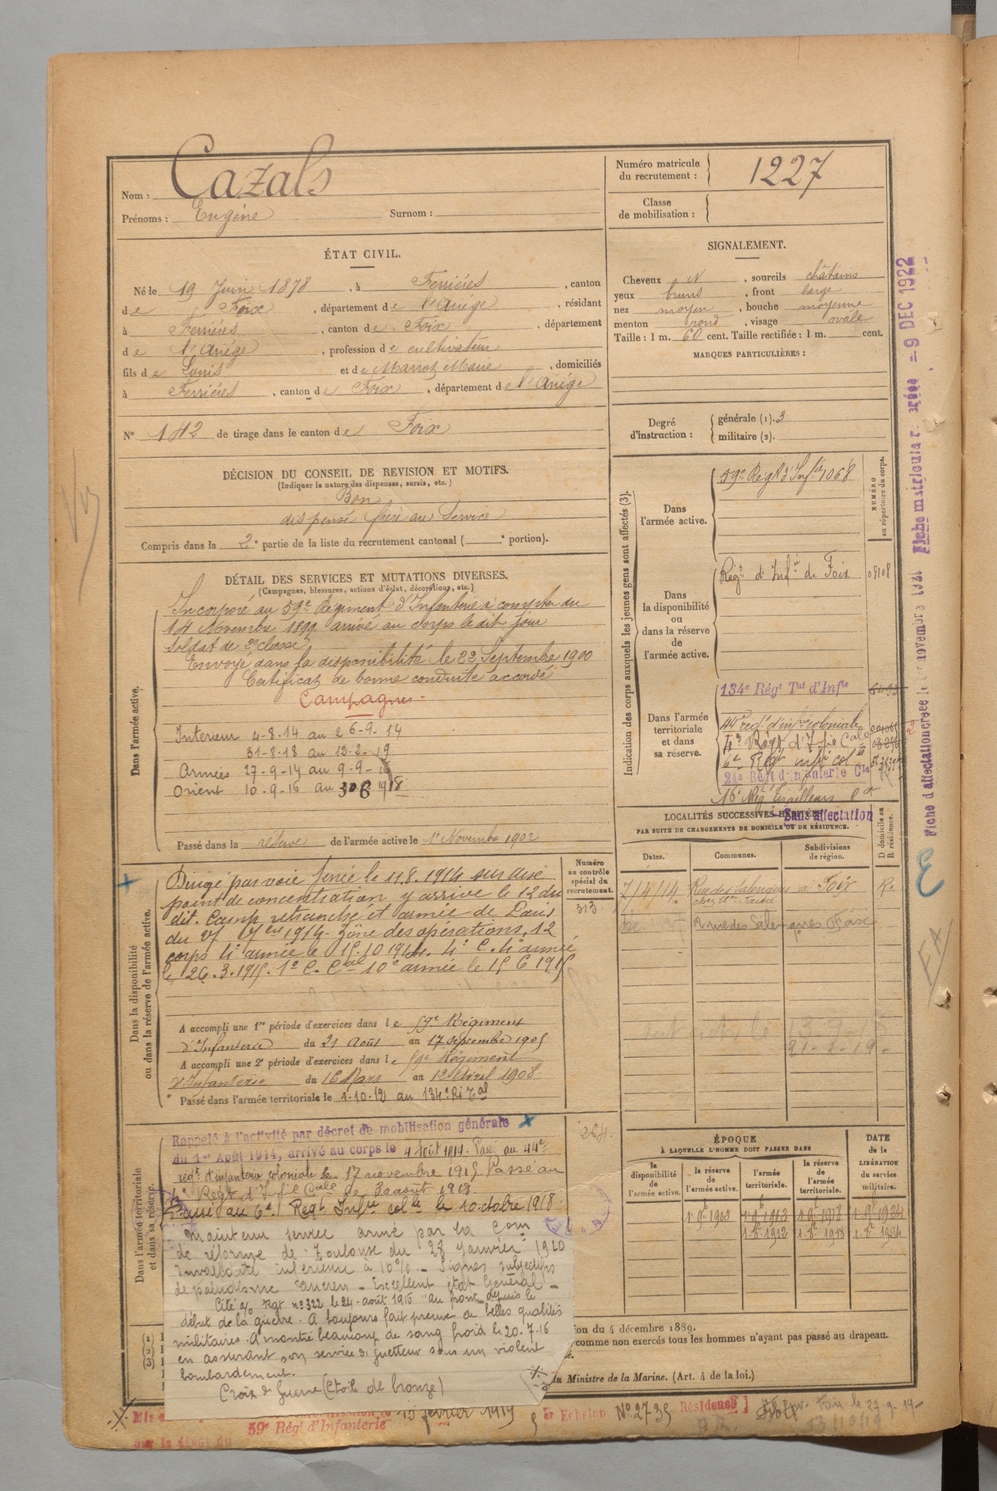 Nom : Cazals
Prénoms : Eugène Surnom :
Numéro matricule du recrutement : 1227
Classe de mobilisation :
ÉTAT CIVIL.
Né le 19 Juin 1878, à Ferrières, canton
de Foix, département de l'Ariége, résidant
à Ferrières, canton de Foix, département
de l'Ariége, profession de cultivateur
fils de Louis et de Marrot Marie, domiciliés
à Ferrières, canton de Foix, département de l'Ariége
N° 142 de tirage dans le canton de Foix
SIGNALEMENT.
Cheveux N, sourcils châtains
yeux bruns, front large
nez moyen, bouche moyenne
menton rond, visage ovale
Taille : 1 m. 60 cent. Taille rectifiée : 1 m. cent.
MARQUES PARTICULIÈRES :
Degré d'instruction : générale (1). 3
militaire (2).
DÉCISION DU CONSEIL DE REVISION ET MOTIFS.
(Indiquer la nature des dispenses, sursis, etc.)
Bon
dispensé frère au Service
Compris dans la 2e partie de la liste du recrutement cantonal ( e portion).
DÉTAIL DES SERVICES ET MUTATIONS DIVERSES.
(Campagnes, blessures, actions d'éclat, décorations, etc.)
Dans l'armée active.
Incorporé au 59e Régiment d'Infanterie à compter du
14 Novembre 1899 arrivé au corps le dit jour
soldat de 2e classe
Envoyé dans la disponibilité le 22 Septembre 1900
Certificat de bonne conduite accordé
Campagnes
Intérieur 4-8-14 au 26-9-14
31-8-18 au 12-2-19
Armées 27-9-14 au 9-9-16
Orient 10-9-16 au 30 8 1918
Passé dans la réserve de l'armée active le 1er Novembre 1902
Dans la disponibilité ou dans la réserve de l'armée active.
Numéro au contrôle spécial du recrutement.
313
Dirigé par voie ferrée le 11 8. 1914 sur
point de concentration y arrive le 12 du
dit. Camp retranché et armée de Paris
du 27 1914. Zône des opérations, 12
corps 4e armée le 15.10 1914. 4e C. 4e armée
le 26.3.1915. 1er C. Cal 10e armée le 15 6 1915
A accompli une 1re période d'exercices dans le 59e Régiment
d'Infanterie du 21 Août au 17 septembre 1905
A accompli une 2e période d'exercices dans le 59e Régiment
d'Infanterie du 16 Mars au 12 Avril 1908
Passé dans l'armée territoriale le 1-10-12 au 134e RI Tal
Dans l'armée territoriale et dans sa réserve.
Rappelé à l'activité par décret de mobilisation générale
du 1er Août 1914, arrivé au corps le 4 Août 1914. Passé au 44e
régt d'infanterie coloniale le 17 novembre 1915 Passé au
4e Régt d'Infie Cale le 30 août 1918
Passé au 6e Régt Infie colle le 10 octobre 1918
Maintenu service armé par la Com
de réforme de Toulouse du 28 Janvier 1920
Invalidité inférieure à 10% - Signes subjectifs
de paludisme ancien - Excellent état Général -
Cité o/o Rgt n° 322 le 24 août 1916 "au front depuis le
début de la guerre. A toujours fait preuve de belles qualités
militaires. A montré beaucoup de sang froid le 20-7-16
en assurant son service de guetteur sous un violent
bombardement.
Croix de Guerre (Etoile de bronze)
Indication des corps auxquels les jeunes gens sont affectés (3).
NUMÉRO au répertoire du corps.
Dans l'armée active.
59e Régt d'Infie 1068
Dans la disponibilité ou dans la réserve de l'armée active.
Régt d'Infie de Foix 08108
Dans l'armée territoriale et dans sa réserve.
134e Régt Tal d'Infie
44e régt d'infie coloniale
4e Régt d'Infie Cale
6e Régt infie colle
21e Régt d'infanterie Cle
16e Rég Tirailleurs
Sans affectation
LOCALITÉS SUCCESSIVES HABITÉES
PAR SUITE DE CHANGEMENTS DE DOMICILE OU DE RÉSIDENCE.
Dates. Communes. Subdivisions de région. D domicile ou R résidence.
7/4/14 Rue des Salenques à Foix R.
R rue des Salenques Foix
21-2-19
ÉPOQUE
À LAQUELLE L'HOMME DOIT PASSER DANS
DATE de la LIBÉRATION du service militaire.
la disponibilité de l'armée active.
la réserve de l'armée active.
l'armée territoriale.
la réserve de l'armée territoriale.
1.9bre 1902
1.8bre 1912
ion du 4 décembre 1889.
comme non exercés tous les hommes n'ayant pas passé au drapeau.
u Ministre de la Marine. (Art. 4 de la loi.)
59e Régt d'Infanterie
15 février 1919
Echelon N° 2735 Résidence
Foix le 27-9-19
Fiche matricule
9 DEC 1922
Fiche d'affectation créée le novembre 1921